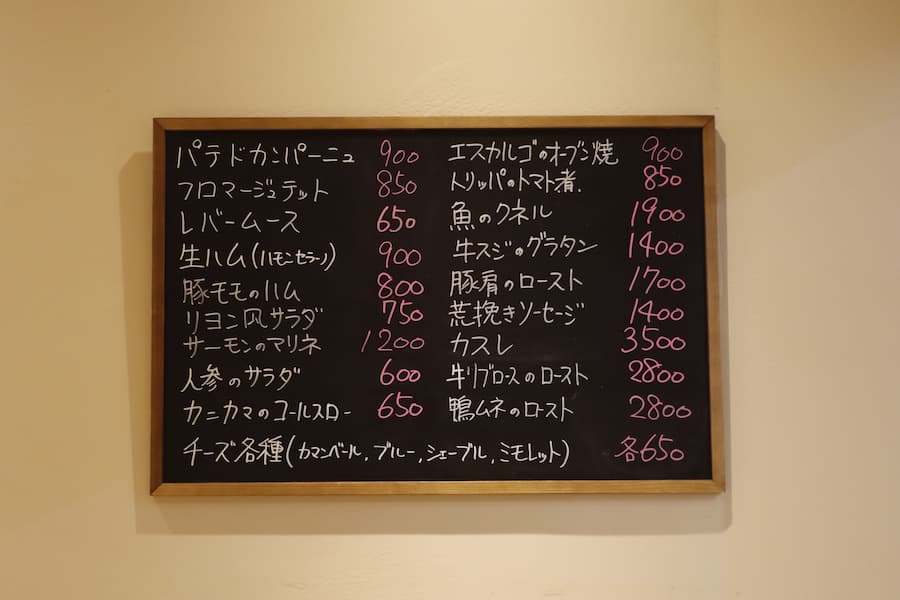 パテドカンパーニュ 900
フロマージュテット 850
レバームース 650
生ハム(ハモンセラーノ) 900
豚モモのハム 800
リヨン風サラダ 750
サーモンのマリネ 1200
人参のサラダ 600
カニカマのコールスロー 650
エスカルゴのオーブン焼 900
トリッパのトマト煮. 850
魚のクネル 1900
牛スジのグラタン 1400
豚肩のロースト 1700
荒挽きソーセージ 1400
カスレ 3500
牛リブロースのロースト 2800
鴨ムネのロースト 2800
チーズ各種(カマンベール,ブルー,シェーブル,ミモレット) 各650